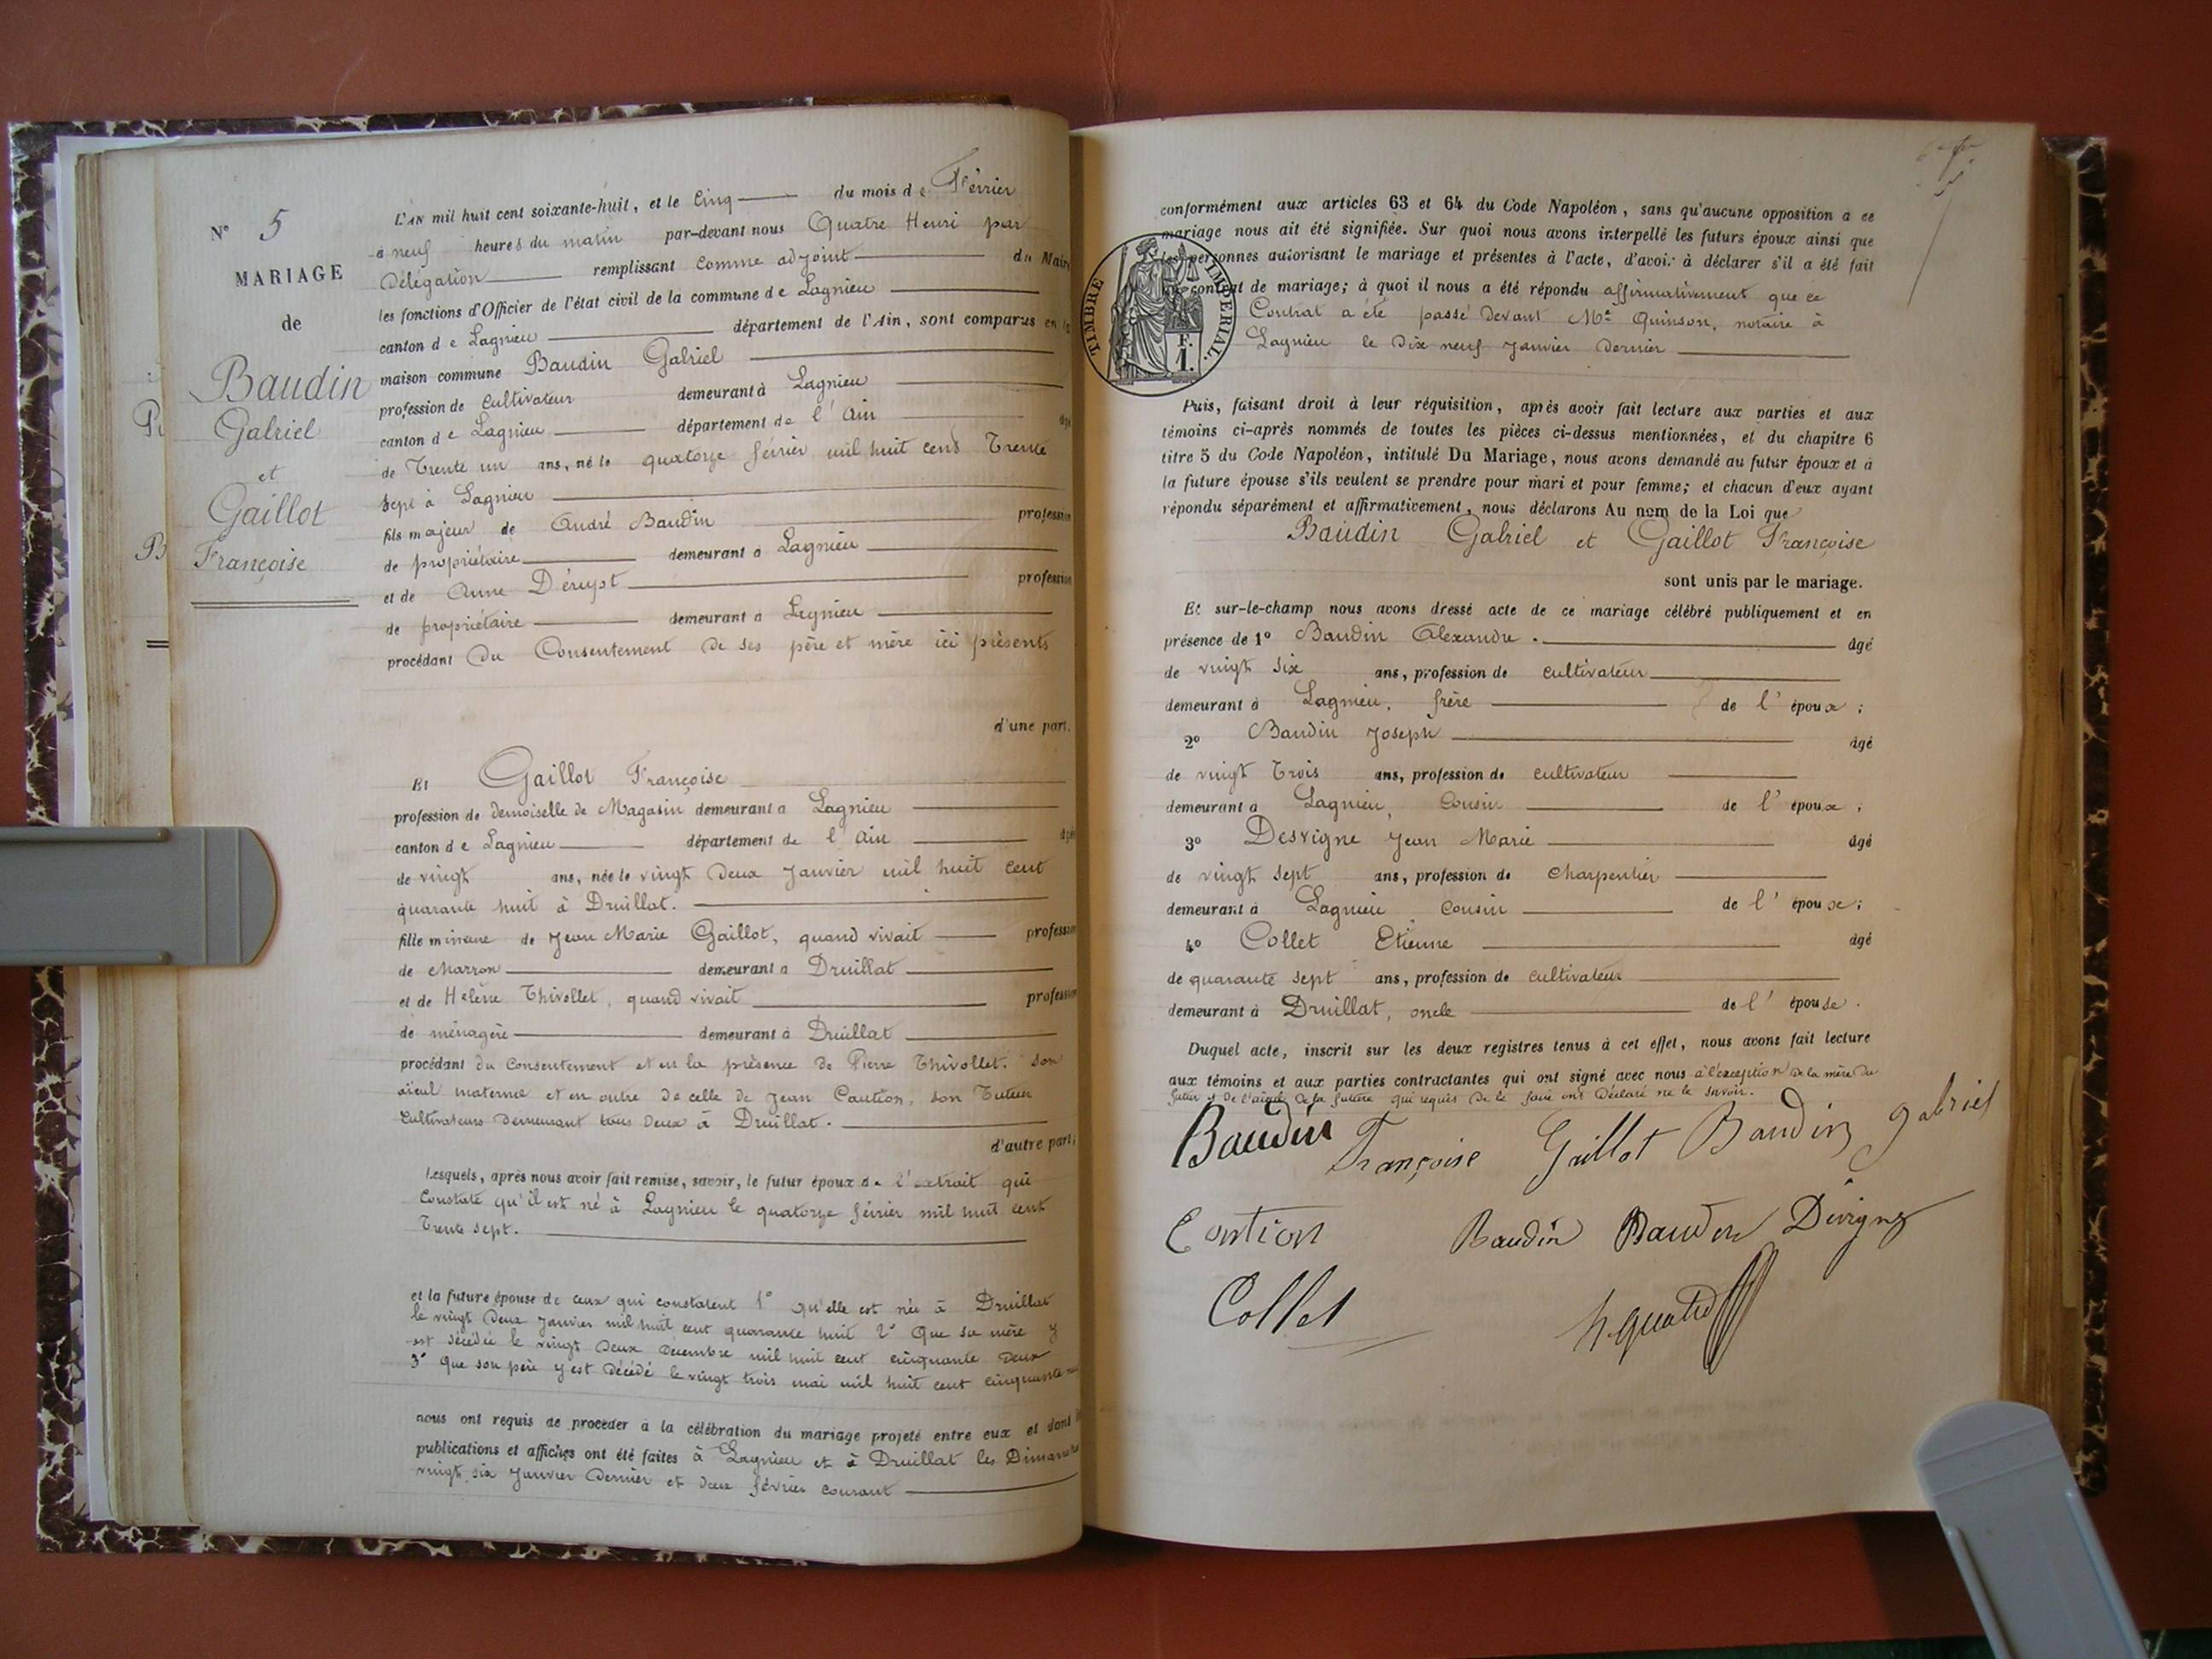 N° 5
MARIAGE
de
Baudin
Gabriel
et
Gaillot
Françoise
L'AN mil huit cent soixante-huit, et le Cinq du mois de Février
à neuf heures du matin par-devant nous Quatre Henri par
Délégation remplissant comme adjoint du Maire
les fonctions d'Officier de l'état civil de la commune de Lagnieu
canton de Lagnieu département de l'Ain, sont comparus en la
maison commune Baudin Gabriel
profession de cultivateur demeurant à Lagnieu
canton de Lagnieu département de l'Ain âgé
de Trente un ans, né le quatorze février mil huit cent Trente
sept à Lagnieu
fils majeur de André Baudin profession
de propriétaire demeurant à Lagnieu
et de Anne Dérupt profession
de propriétaire demeurant à Lagnieu
procédant du Consentement de ses père et mère ici présents
d'une part.
Et Gaillot Françoise
profession de demoiselle de Magasin demeurant à Lagnieu
canton de Lagnieu département de l'Ain âgée
de vingt ans, née le vingt deux Janvier mil huit cent
quarante huit à Druillat.
fille mineure de Jean Marie Gaillot, quand vivait profession
de charron demeurant à Druillat
et de Hélène Thivollet, quand vivait profession
de ménagère demeurant à Druillat
procédant du consentement et en la présence de Pierre Thivollet, son
aïeul maternel et en outre de celle de Jean Caution, son Tuteur
cultivateurs demeurant tous deux à Druillat.
d'autre part;
Lesquels, après nous avoir fait remise, savoir, le futur époux de l'extrait qui
constate qu'il est né à Lagnieu le quatorze février mil huit cent
Trente sept.
et la future épouse de ceux qui constatent 1° qu'elle est née à Druillat
le vingt deux Janvier mil huit cent quarante huit 2° Que sa mère y
est décédée le vingt deux décembre mil huit cent cinquante deux
3° que son père y est décédé le vingt trois mai mil huit cent cinquante
nous ont requis de procéder à la célébration du mariage projeté entre eux et dont les
publications et affiches ont été faites à Lagnieu et à Druillat les Dimanches
vingt six Janvier dernier et deux février courant
conformément aux articles 63 et 64 du Code Napoléon, sans qu'aucune opposition à ce
mariage nous ait été signifiée. Sur quoi nous avons interpellé les futurs époux ainsi que
les personnes autorisant le mariage et présentes à l'acte, d'avoir à déclarer s'il a été fait
un contrat de mariage; à quoi il nous a été répondu affirmativement que ce
Contrat a été passé devant Me Quinson, notaire à
Lagnieu le dix neuf Janvier dernier
TIMBRE IMPERIAL.
F.
1.
Puis, faisant droit à leur réquisition, après avoir fait lecture aux parties et aux
témoins ci-après nommés de toutes les pièces ci-dessus mentionnées, et du chapitre 6
titre 5 du Code Napoléon, intitulé Du Mariage, nous avons demandé au futur époux et à
la future épouse s'ils veulent se prendre pour mari et pour femme; et chacun d'eux ayant
répondu séparément et affirmativement, nous déclarons Au nom de la Loi que
Baudin Gabriel et Gaillot Françoise
sont unis par le mariage.
Et sur-le-champ nous avons dressé acte de ce mariage célébré publiquement et en
présence de 1° Baudin Alexandre. âgé
de vingt six ans, profession de cultivateur
demeurant à Lagnieu, frère de l'époux;
2° Baudin Joseph âgé
de vingt trois ans, profession de cultivateur
demeurant à Lagnieu, Cousin de l'époux;
3° Desvigne Jean Marie âgé
de vingt sept ans, profession de charpentier
demeurant à Lagnieu cousin de l'époux;
4° Collet Etienne âgé
de quarante sept ans, profession de cultivateur
demeurant à Druillat, oncle de l'épouse.
Duquel acte, inscrit sur les deux registres tenus à cet effet, nous avons fait lecture
aux témoins et aux parties contractantes qui ont signé avec nous à l'exception de la mère du
futur et de l'aïeul de la future qui requis de le faire ont déclaré ne le savoir.
Baudin Françoise Gaillot Baudin gabriel
Caution Baudin Baudin Dévigne
Collet h. quatre